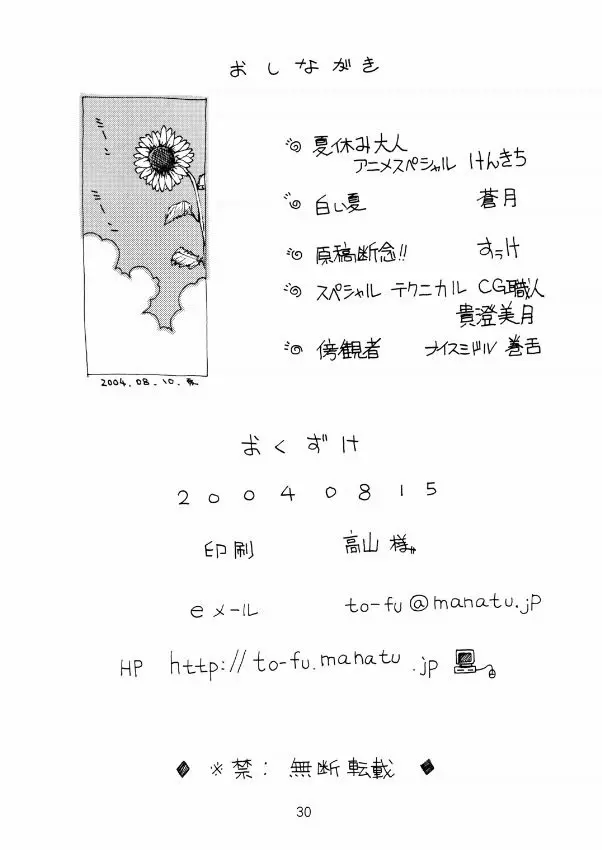 おしながき
夏休み大人
アニメスペシャル けんきち
白い夏 蒼月
原稿断念!! すぅけ
スペシャル テクニカル CG職人
貴澄美月
傍観者 ナイスミドル 巻舌
2004.08.10.
おくずけ
20040815
印刷 高山 様
eメール to-fu@manatu.jp
HP http://to-fu.manatu.jp
◆ ※禁: 無断転載 ◆
30